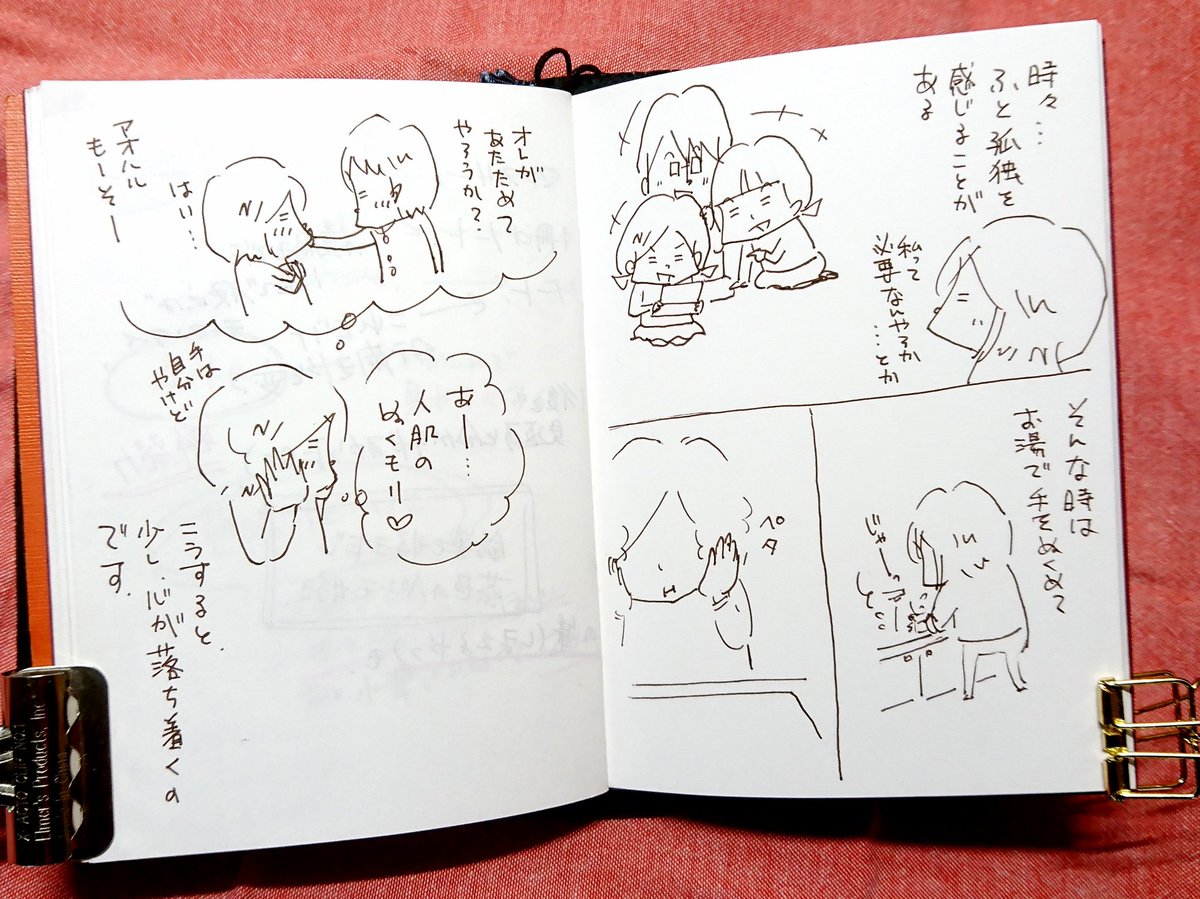 時々…
ふと孤独を
感じることが
ある
私って
必要なんやろか
…とか
そんな時は
お湯で手をぬくめて
じゃー
ペタ
あー…
人肌の
ぬくもり♡
手は
自分
やけど
オレが
あたためて
やろうか?
はい…
アオハル
もーそー
こうすると、
少し、心が落ち着くの
です。
Elmer's Products, Inc